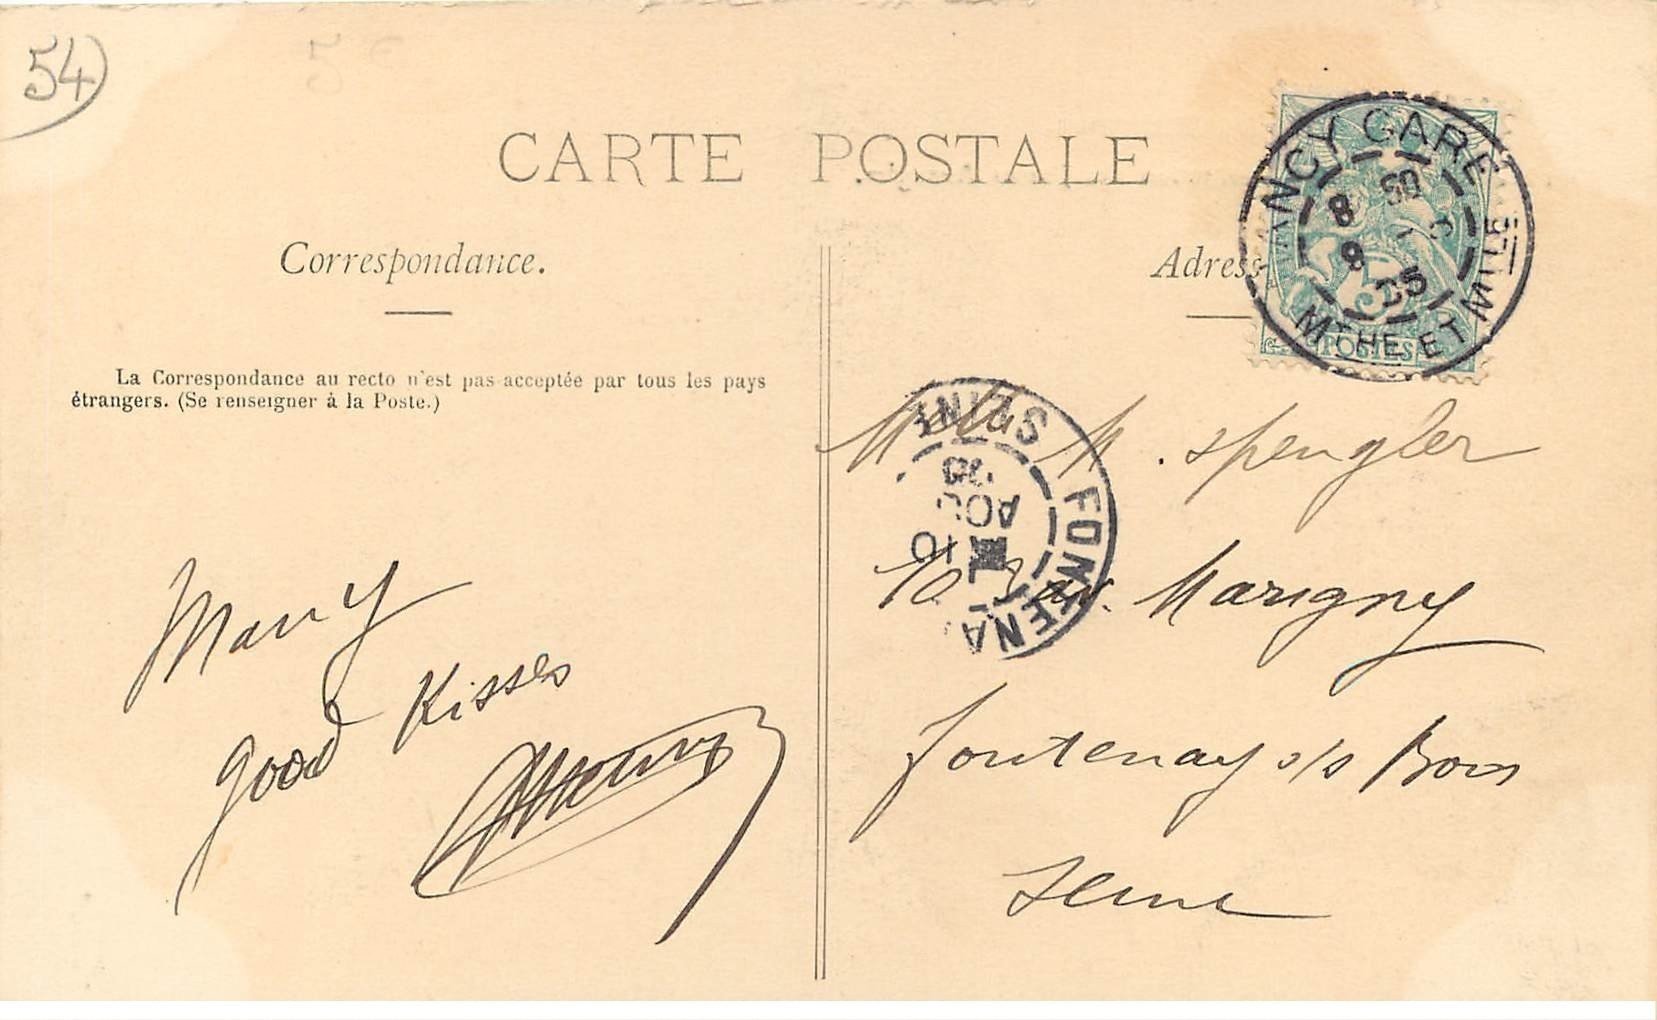 54
5 €
CARTE POSTALE
Correspondance.
La Correspondance au recto n'est pas acceptée par tous les pays
étrangers. (Se renseigner à la Poste.)
Many
good Kisses
Adress
NANCY GARE
8 50
9 - 8
05
MTHE ET MLLE
5
POSTES
SEINE FONTENA
10
AOU
05
M. Spengler
10 Marigny
Fontenay s/s Bois
Seine